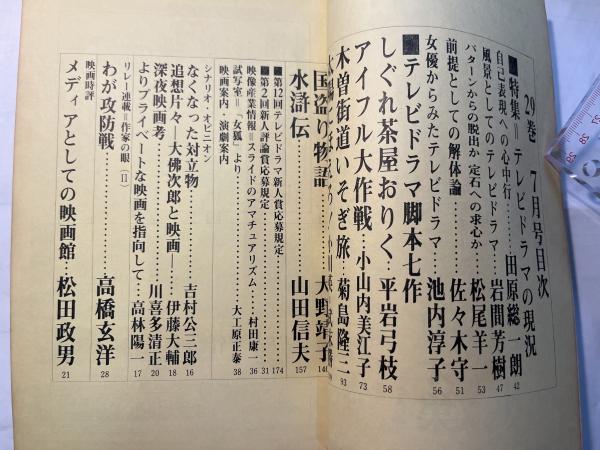 29巻 7月号目次
■特集＝テレビドラマの現況
自己表現への心中行……田原総一朗 42
風景としてのテレビドラマ……岩間芳樹 47
パターンからの脱出か 定石への求心か……松尾羊一 53
前提としての解体論……佐々木守 51
女優からみたテレビドラマ……池内淳子 56
■テレビドラマ脚本七作
しぐれ茶屋おりく……平岩弓枝 58
アイフル大作戦……小山内美江子 73
木曽街道いそぎ旅……菊島隆三 93
国盗り物語……大野靖子 140
水滸伝……山田信夫 157
■第12回テレビドラマ新人賞応募規定……174
■第2回新人評論賞応募規定……31
映像産業情報＝スライドのアマチュアリズム……村田康一 36
試写室＝「女囚」より……大工原正泰 38
映画案内 演劇案内
シナリオ・オピニオン
なくなった対立物……吉村公三郎 16
追想片々―大佛次郎と映画―……伊藤大輔 18
深夜映画考……川喜多清正 20
よりプライベートな映画を指向して……高林陽一 17
リレー連載＝作家の眼(11)
わが攻防戦……高橋玄洋 28
映画時評
メディアとしての映画館……松田政男 21